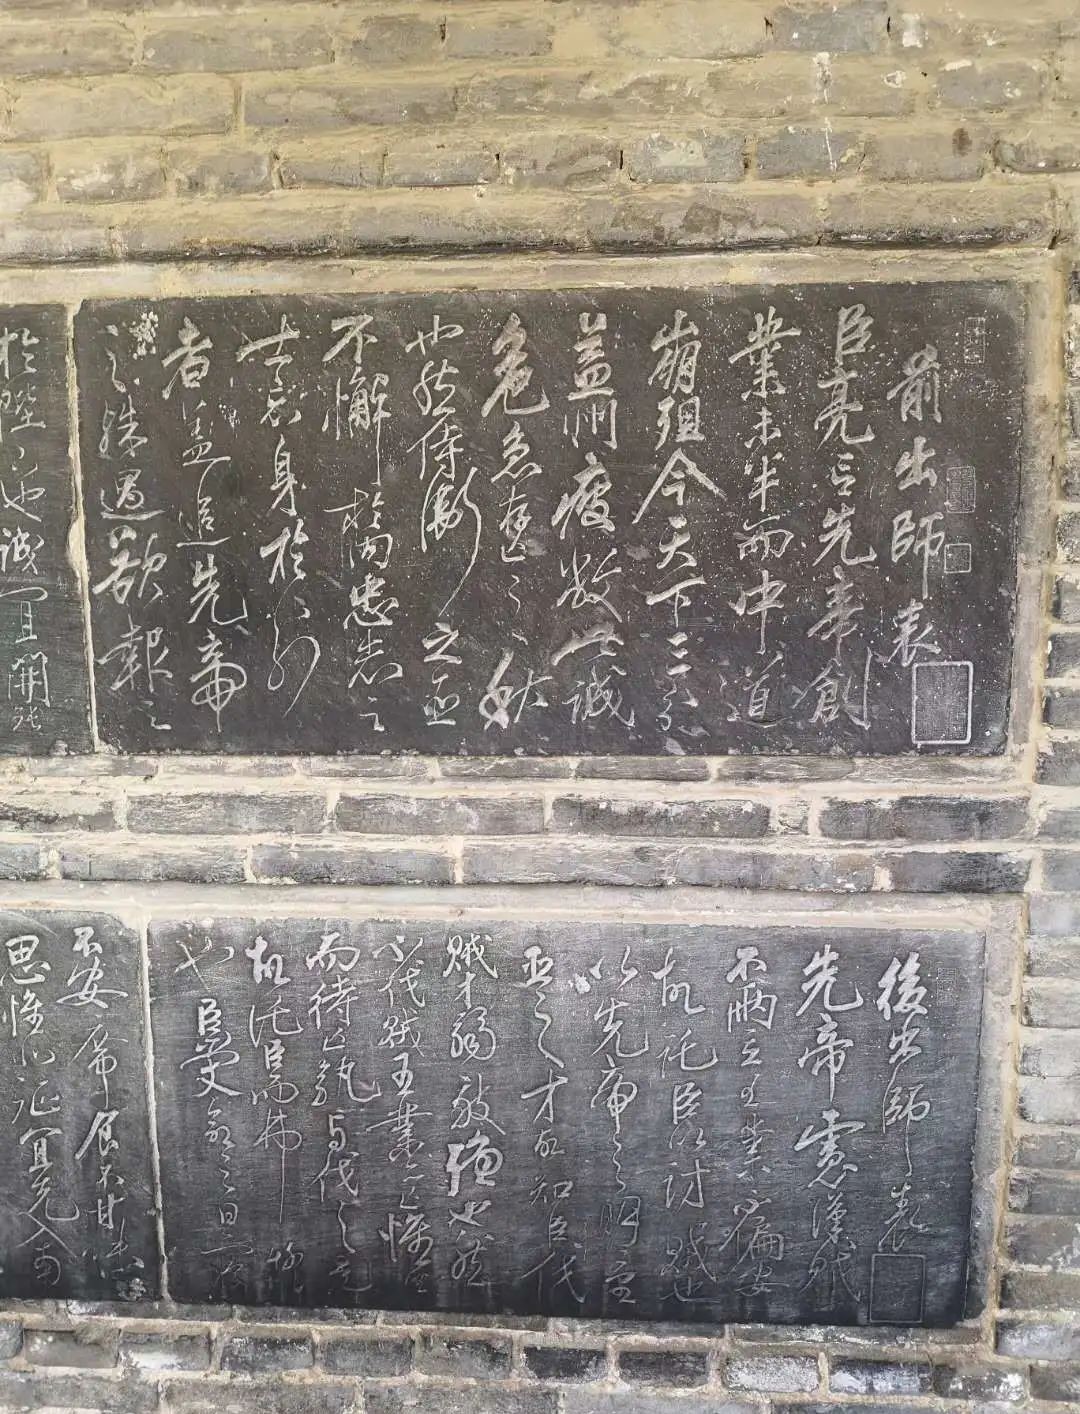 前出師表
臣亮言先帝創
業未半而中道
崩殂今天下三分
益州疲敝此誠
危急存亡之秋
也然侍衛之臣
不懈於內忠志之
士忘身於外
者蓋追先帝
之殊遇欲報之
於陛下也誠宜開張
後出師表
先帝慮漢賊
不兩立王業不偏安
故託臣以討賊也
以先帝之明量
臣之才故知臣伐
賊才弱敵強也然
不伐賊王業亦亡惟坐
而待亡孰與伐之是
故託臣而弗疑
也臣受命之日寢
不安席食不甘味
思惟北征宜先入南